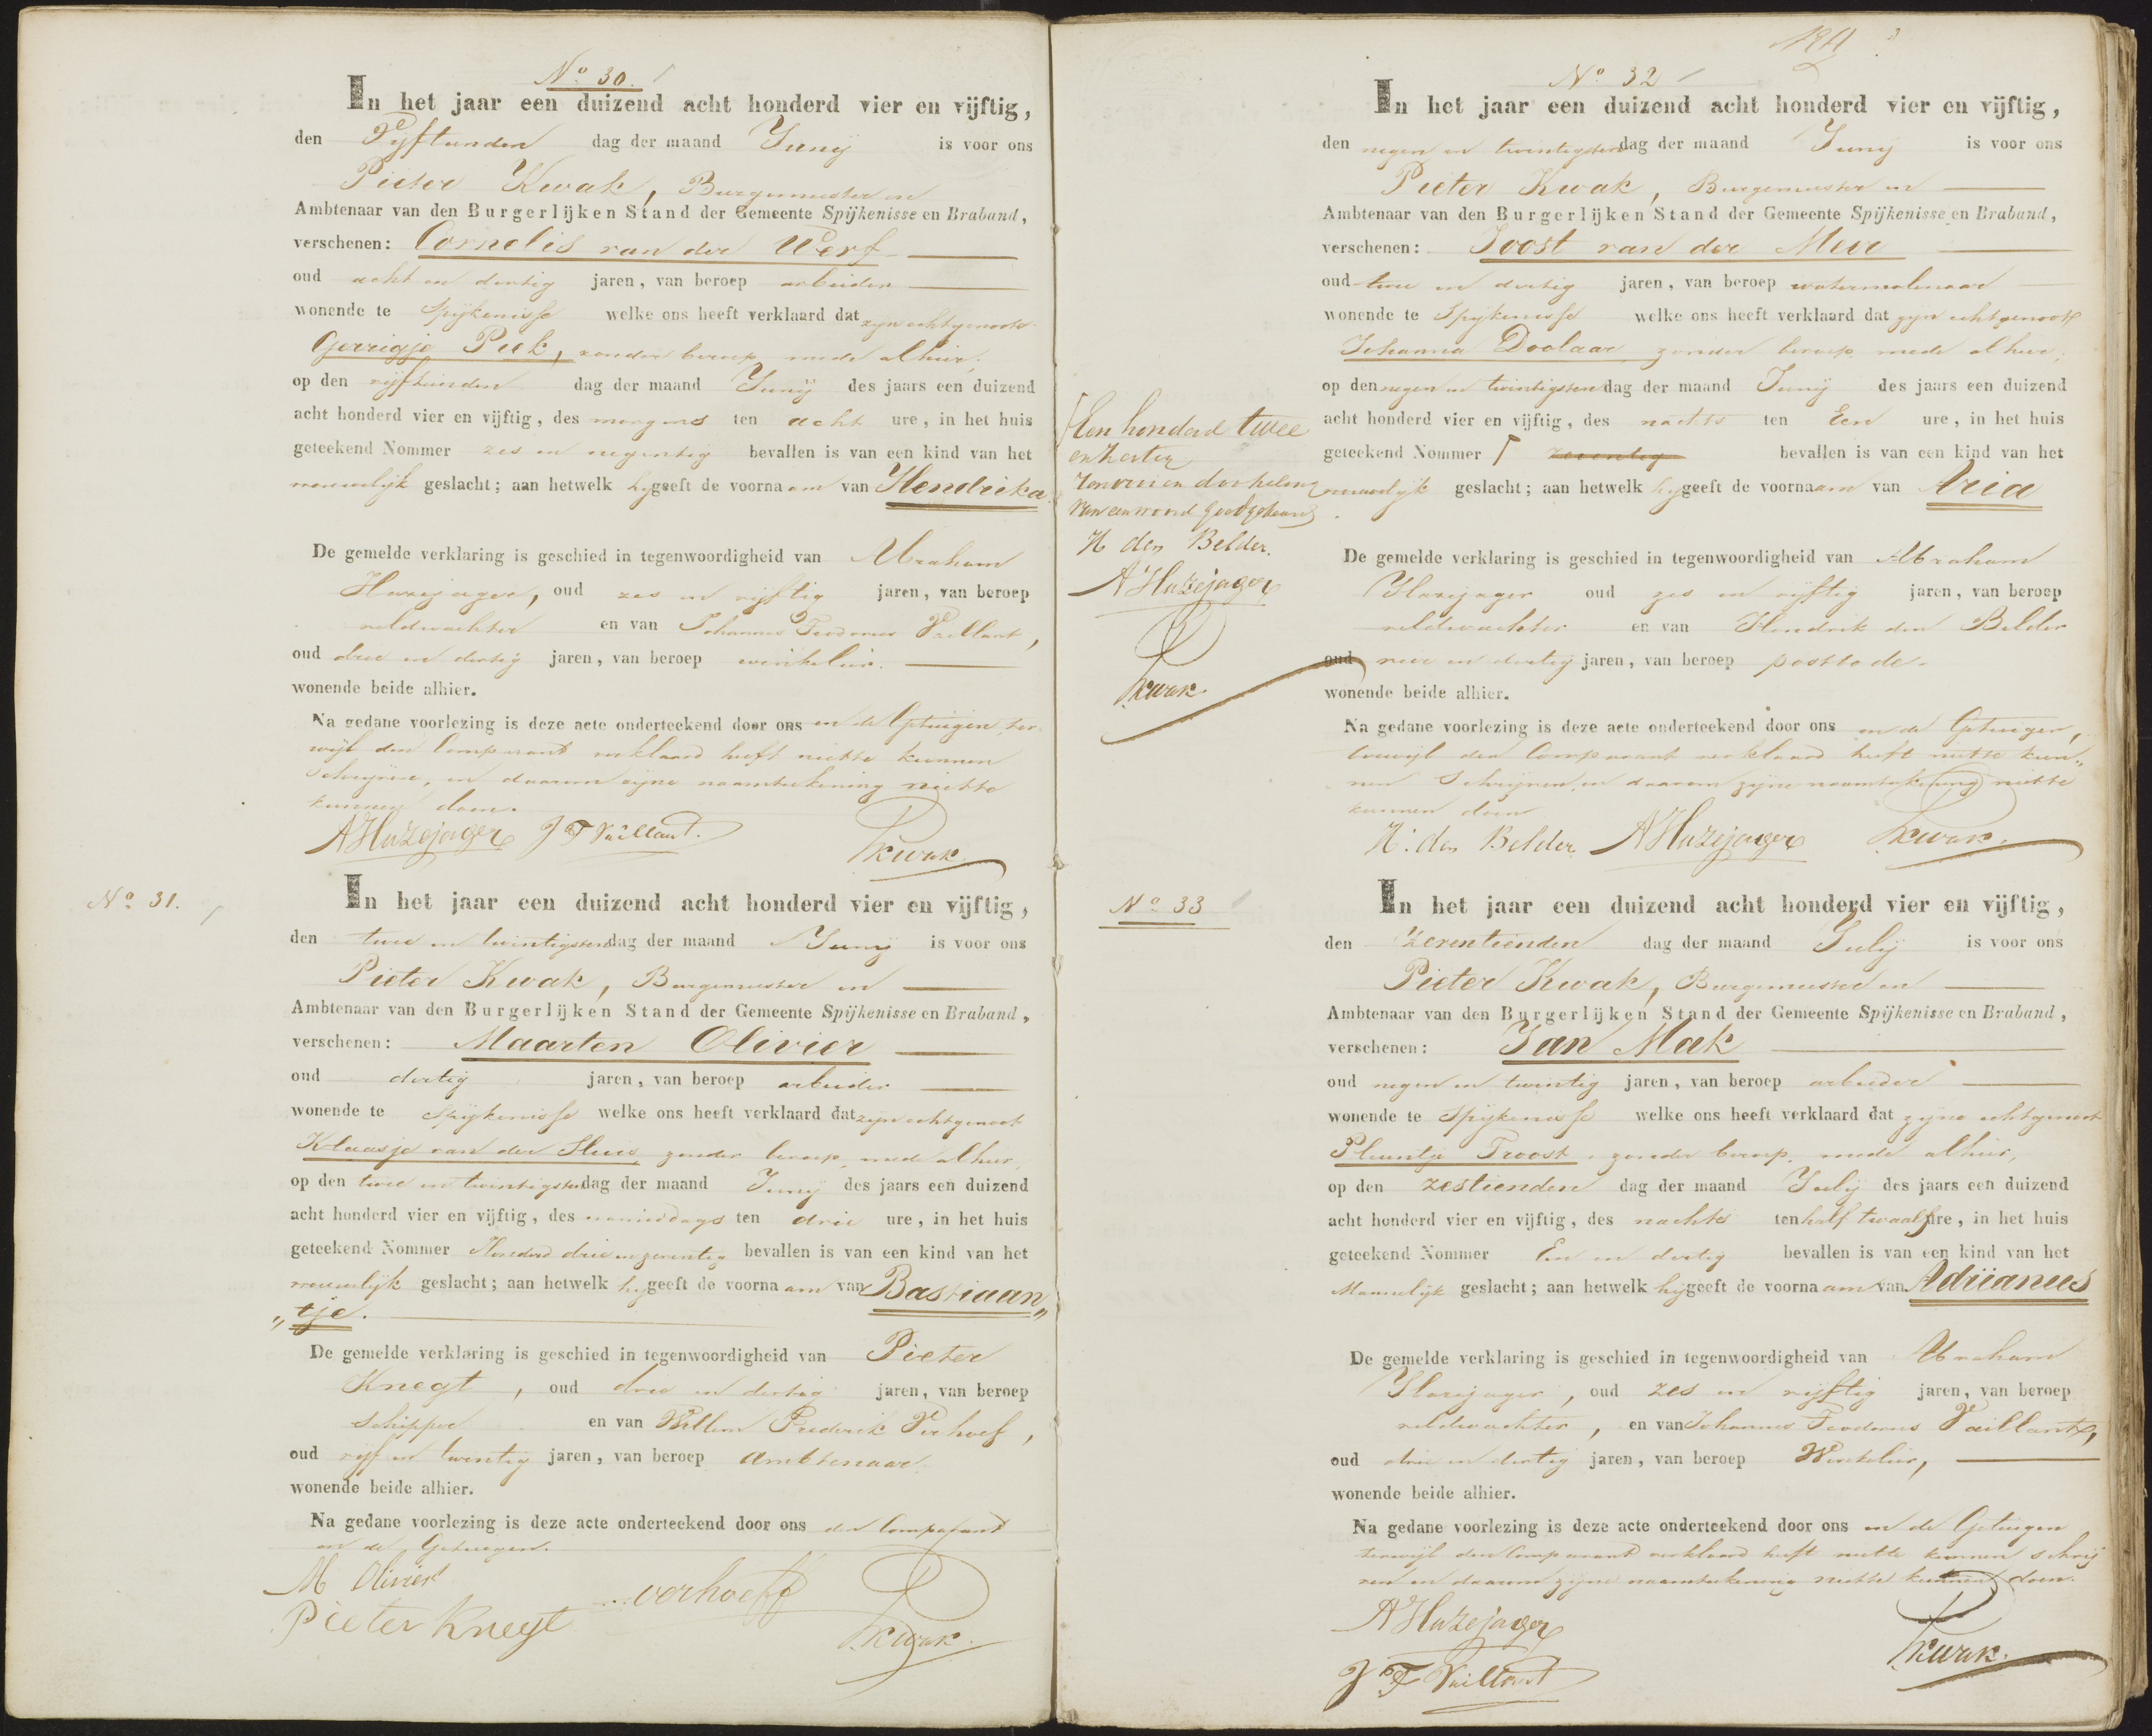 No 30.
In het jaar een duizend acht honderd vier en vijftig,
den Vyftienden dag der maand Junij is voor ons
Pieter Kwak, Burgemeester en
Ambtenaar van den Burgerlijken Stand der Gemeente Spijkenisse en Braband,
verschenen: Cornelis van der Werf
oud acht en dertig jaren, van beroep arbeider
wonende te Spijkenisse welke ons heeft verklaard dat zijn echtgenoote
Gerrigje Piek, zonder beroep mede alhier,
op den vijftienden dag der maand Junij des jaars een duizend
acht honderd vier en vijftig, des morgens ten acht ure, in het huis
geteekend Nommer zes en negentig bevallen is van een kind van het
vrouwelijk geslacht; aan hetwelk hij geeft de voornaam van Hendrika
De gemelde verklaring is geschied in tegenwoordigheid van Abraham
Hazejager, oud zes en vijftig jaren, van beroep
veldwachter en van Johannes Teodorus Vaillant,
oud drie en dertig jaren, van beroep winkelier.
wonende beide alhier.
Na gedane voorlezing is deze acte onderteekend door ons en de Getuigen, ter
wijl den Comparant verklaard heeft niet te kunnen
schrijven, en daarom zijne naamteekening niet te
kunnen doen.
A Hazejager J T Vaillant. P Kwak.
No 31.
In het jaar een duizend acht honderd vier en vijftig,
den twee en twintigsten dag der maand Junij is voor ons
Pieter Kwak, Burgemeester en
Ambtenaar van den Burgerlijken Stand der Gemeente Spijkenisse en Braband,
verschenen: Maarten Olivier
oud dertig jaren, van beroep arbeider
wonende te Spijkenisse welke ons heeft verklaard dat zijn echtgenoot
Klaasje van der Sluis, zonder beroep, mede alhier,
op den twee en twintigsten dag der maand Junij des jaars een duizend
acht honderd vier en vijftig, des namiddags ten drie ure, in het huis
geteekend Nommer Honderd drie en zeventig bevallen is van een kind van het
vrouwelijk geslacht; aan hetwelk hij geeft de voornaam van Bastiaan„
„tje.
De gemelde verklaring is geschied in tegenwoordigheid van Pieter
Knegt, oud drie en dertig jaren, van beroep
schipper en van Willem Frederik Verhoef,
oud vijf en twintig jaren, van beroep Ambtenaar.
wonende beide alhier.
Na gedane voorlezing is deze acte onderteekend door ons den Comparant
en de Getuigen.
M Olivier
verhoeff
Pieter Knegt
P Kwak.
No 32
In het jaar een duizend acht honderd vier en vijftig,
den negen en twintigsten dag der maand Junij is voor ons
Pieter Kwak, Burgemeester en
Ambtenaar van den Burgerlijken Stand der Gemeente Spijkenisse en Braband,
verschenen: Joost van der Meer
oud twee en dertig jaren, van beroep watermolenaar
wonende te Spijkenisse welke ons heeft verklaard dat zijn echtgenoot
Johanna Doolaar zonder beroep mede alhier,
op den negen en twintigsten dag der maand Junij des jaars een duizend
acht honderd vier en vijftig, des nachts ten Een ure, in het huis
geteekend Nommer zeventig bevallen is van een kind van het
vrouwelijk geslacht; aan hetwelk hij geeft de voornaam van Aria
De gemelde verklaring is geschied in tegenwoordigheid van Abraham
Hazejager oud zes en vijftig jaren, van beroep
veldwachter en van Hendrik den Belder
oud vier en dertig jaren, van beroep postbode.
wonende beide alhier.
Na gedane voorlezing is deze acte onderteekend door ons en de Getuigen,
terwijl den Comparant verklaard heeft niet te kun„
nen Schrijven, en daarom zijne naamteekening niet te
kunnen doen
H: den Belder A Hazejager P Kwak.
Een honderd twee
en
van een woord goedgekeurd
H den Belder.
A Hazejager
P Kwak.
No 33
In het jaar een duizend acht honderd vier en vijftig,
den Zeventienden dag der maand Julij is voor ons
Pieter Kwak, Burgemeester en
Ambtenaar van den Burgerlijken Stand der Gemeente Spijkenisse en Braband,
verschenen: Jan Mak
oud negen en twintig jaren, van beroep arbeider
wonende te Spijkenisse welke ons heeft verklaard dat zijne echtgenoot
Pleuntje Troost, zonder beroep, mede alhier,
op den zestienden dag der maand Julij des jaars een duizend
acht honderd vier en vijftig, des nachts ten half twaalf ure, in het huis
geteekend Nommer Een en dertig bevallen is van een kind van het
Mannelijk geslacht; aan hetwelk hij geeft de voornaam van Adrianus
De gemelde verklaring is geschied in tegenwoordigheid van Abraham
Hazejager, oud zes en vijftig jaren, van beroep
veldwachter, en van Johannes Teodorus Vaillant,
oud drie en dertig jaren, van beroep Winkelier,
wonende beide alhier.
Na gedane voorlezing is deze acte onderteekend door ons en de Getuigen
terwijl den Comparant verklaard heeft niet te kunnen schrij
ven en daarom zijne naamteekening niet te kunnen doen.
A Hazejager
P Kwak.
J T Vaillant